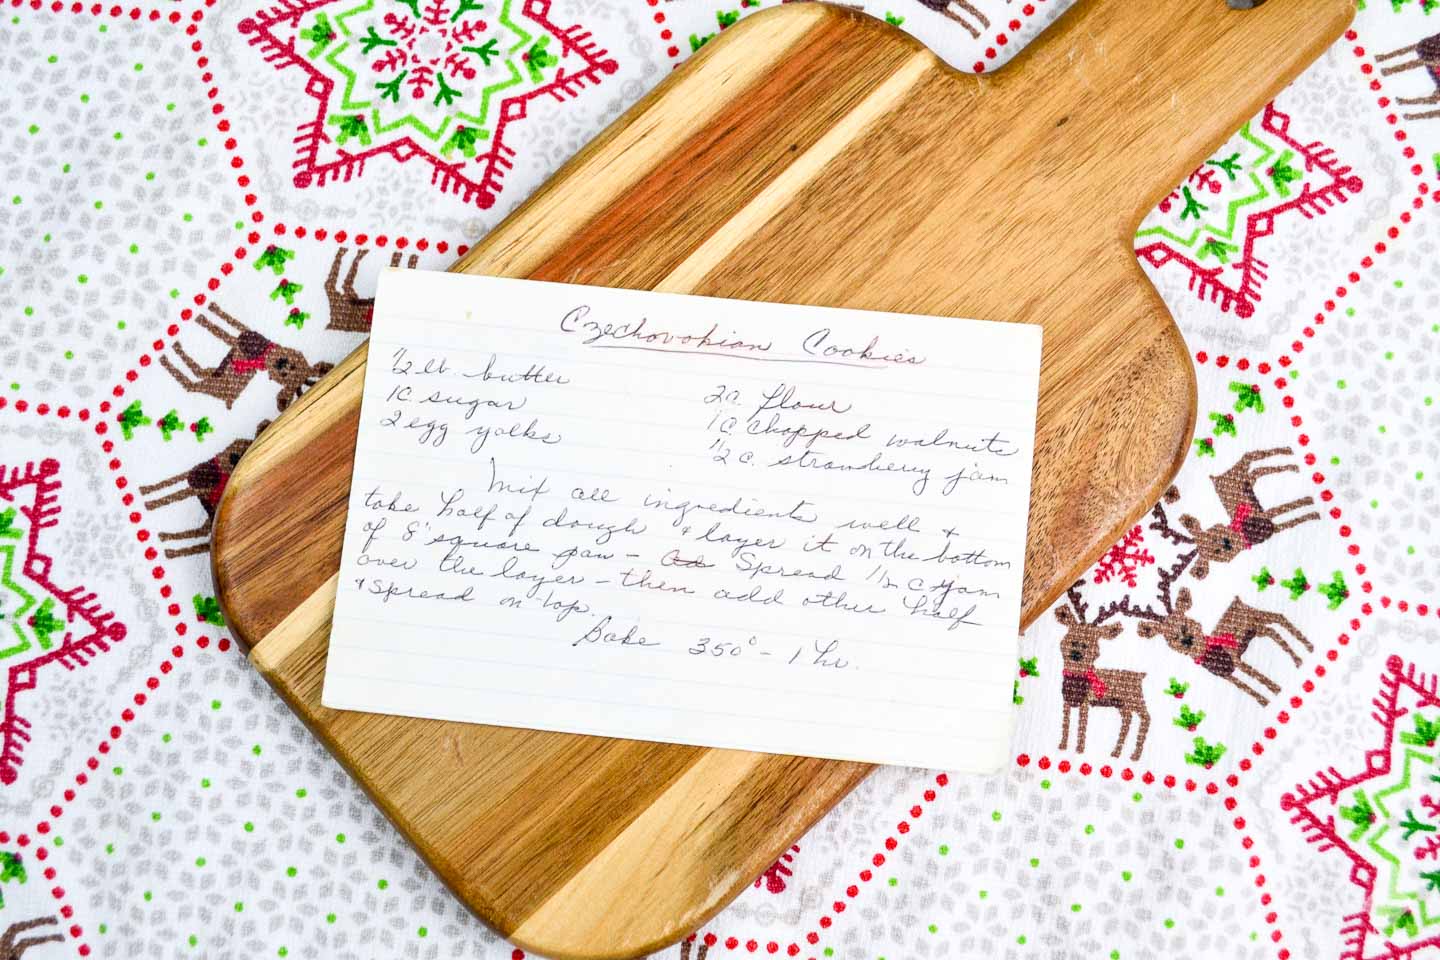 Czechovokian Cookies
1/2 lb. butter
1c. sugar
2 egg yolks
2c. flour
1c. chopped walnuts
1/2 c. strawberry jam
Mix all ingredients well &
take half of dough & layer it on the bottom
of 8" square pan - Spread 1/2 c jam
over the layer - then add other half
& spread on top.
Bake 350° - 1 hr.